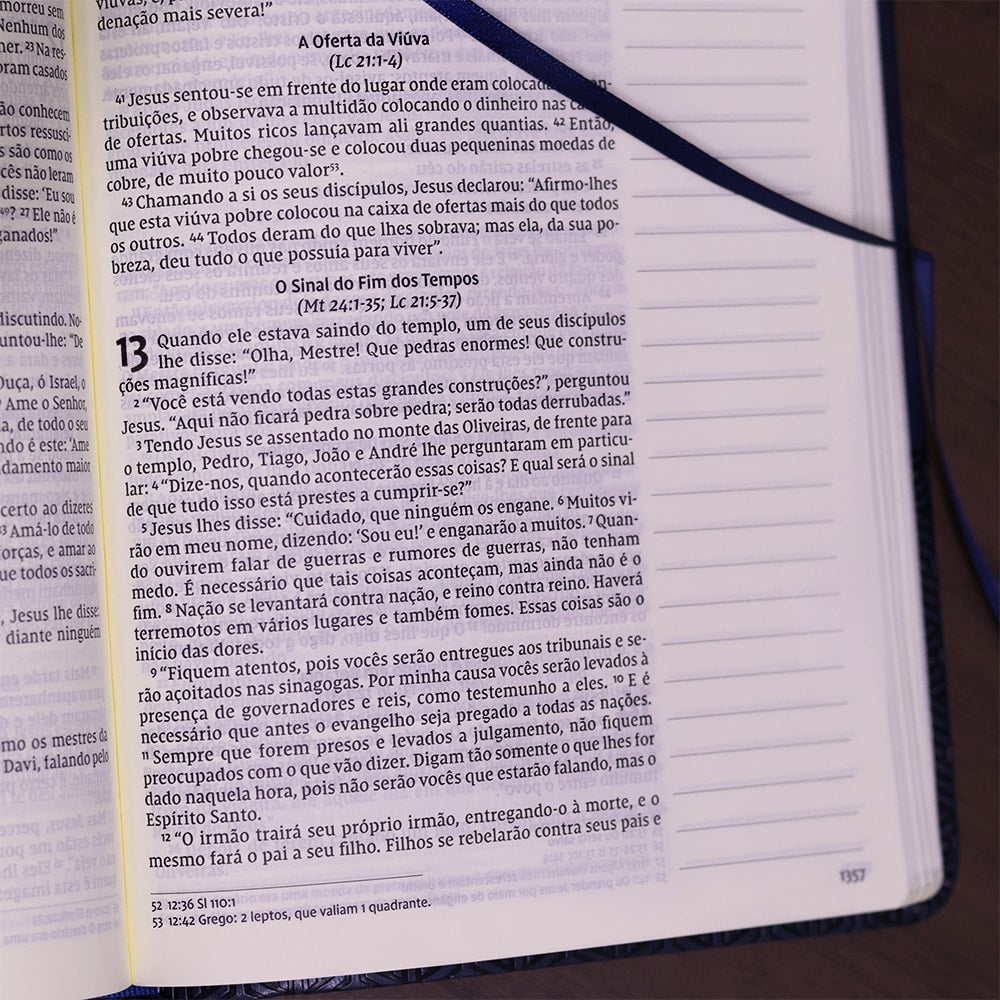 morreu sem
Nenhum dos
her. ²³ Na res-
oram casados
ão conhecem
rtos ressusci-
s são como os
cês não leram
disse: ‘Eu sou
⁴⁹? ²⁷ Ele não é
ganados!”
discutindo. No-
untou-lhe: “De
Ouça, ó Israel, o
Ame o Senhor,
a, de todo o seu
ndo é este: ‘Ame
damento maior
certo ao dizeres
³³ Amá-lo de todo
orças, e amar ao
ue todos os sacri-
, Jesus lhe disse:
diante ninguém
mo os mestres da
Davi, falando pelo
denação mais severa!”
A Oferta da Viúva
(Lc 21:1-4)
⁴¹ Jesus sentou-se em frente do lugar onde eram
tribuições, e observava a multidão colocando o dinheiro nas
de ofertas. Muitos ricos lançavam ali grandes quantias. ⁴² Então,
uma viúva pobre chegou-se e colocou duas pequeninas moedas de
cobre, de muito pouco valor⁵³.
⁴³ Chamando a si os seus discípulos, Jesus declarou: “Afirmo-lhes
que esta viúva pobre colocou na caixa de ofertas mais do que todos
os outros. ⁴⁴ Todos deram do que lhes sobrava; mas ela, da sua po-
breza, deu tudo o que possuía para viver”.
O Sinal do Fim dos Tempos
(Mt 24:1-35; Lc 21:5-37)
13 Quando ele estava saindo do templo, um de seus discípulos
lhe disse: “Olha, Mestre! Que pedras enormes! Que constru-
ções magníficas!”
² “Você está vendo todas estas grandes construções?”, perguntou
Jesus. “Aqui não ficará pedra sobre pedra; serão todas derrubadas.”
³ Tendo Jesus se assentado no monte das Oliveiras, de frente para
o templo, Pedro, Tiago, João e André lhe perguntaram em particu-
lar: ⁴ “Dize-nos, quando acontecerão essas coisas? E qual será o sinal
de que tudo isso está prestes a cumprir-se?”
⁵ Jesus lhes disse: “Cuidado, que ninguém os engane. ⁶ Muitos vi-
rão em meu nome, dizendo: ‘Sou eu!’ e enganarão a muitos. ⁷ Quan-
do ouvirem falar de guerras e rumores de guerras, não tenham
medo. É necessário que tais coisas aconteçam, mas ainda não é o
fim. ⁸ Nação se levantará contra nação, e reino contra reino. Haverá
terremotos em vários lugares e também fomes. Essas coisas são o
início das dores.
⁹ “Fiquem atentos, pois vocês serão entregues aos tribunais e se-
rão açoitados nas sinagogas. Por minha causa vocês serão levados à
presença de governadores e reis, como testemunho a eles. ¹⁰ E é
necessário que antes o evangelho seja pregado a todas as nações.
¹¹ Sempre que forem presos e levados a julgamento, não fiquem
preocupados com o que vão dizer. Digam tão somente o que lhes for
dado naquela hora, pois não serão vocês que estarão falando, mas o
Espírito Santo.
¹² “O irmão trairá seu próprio irmão, entregando-o à morte, e o
mesmo fará o pai a seu filho. Filhos se rebelarão contra seus pais e
52 12:36 Sl 110:1
53 12:42 Grego: 2 leptos, que valiam 1 quadrante.
1357